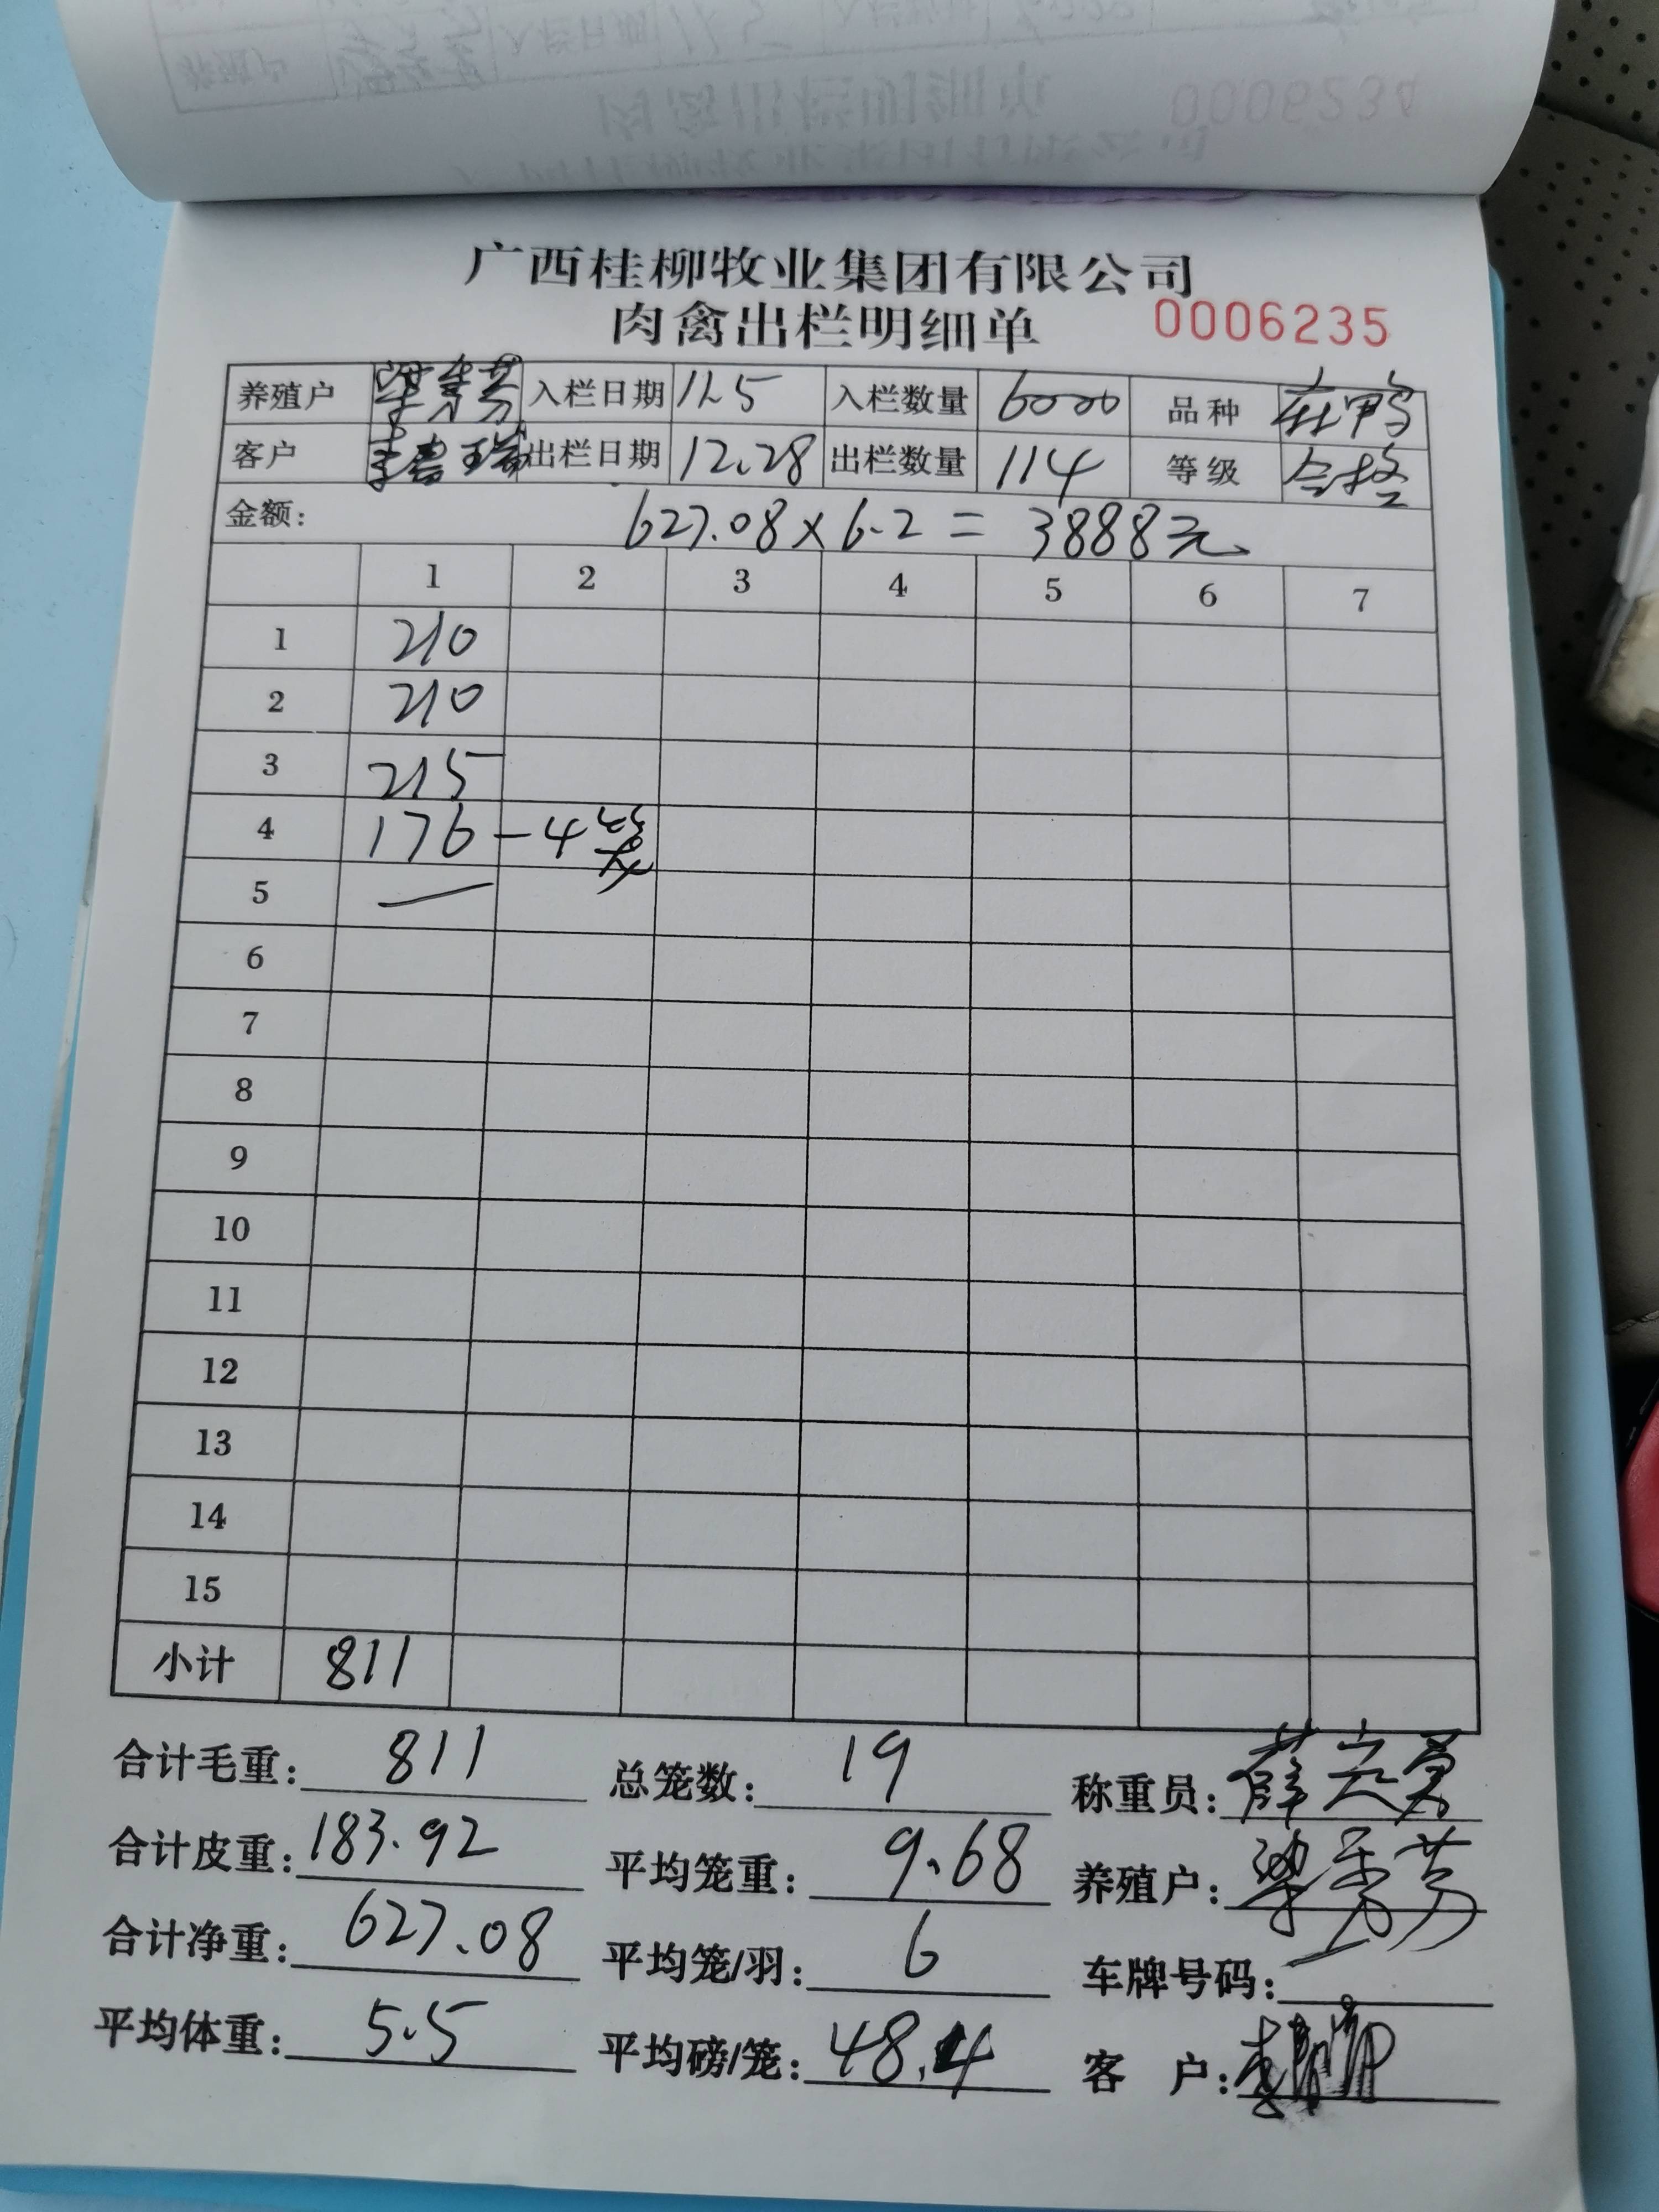 0006234
广西桂柳牧业集团有限公司
肉禽出栏明细单 0006235
养殖户 入栏日期 11.5 入栏数量 6000 品种 鸭
客户 李 瑞 出栏日期 12.28 出栏数量 114 等级 合格
金额: 627.08×6.2=3888元
1 2 3 4 5 6 7
1 210
2 210
3 215
4 176-4笼
5 —
6
7
8
9
10
11
12
13
14
15
小计 811
合计毛重: 811 总笼数: 19 称重员: 薛
合计皮重: 183.92 平均笼重: 9.68 养殖户: 梁 芳
合计净重: 627.08 平均笼/羽: 6 车牌号码:
平均体重: 5.5 平均磅/笼: 48.4 客 户: 李